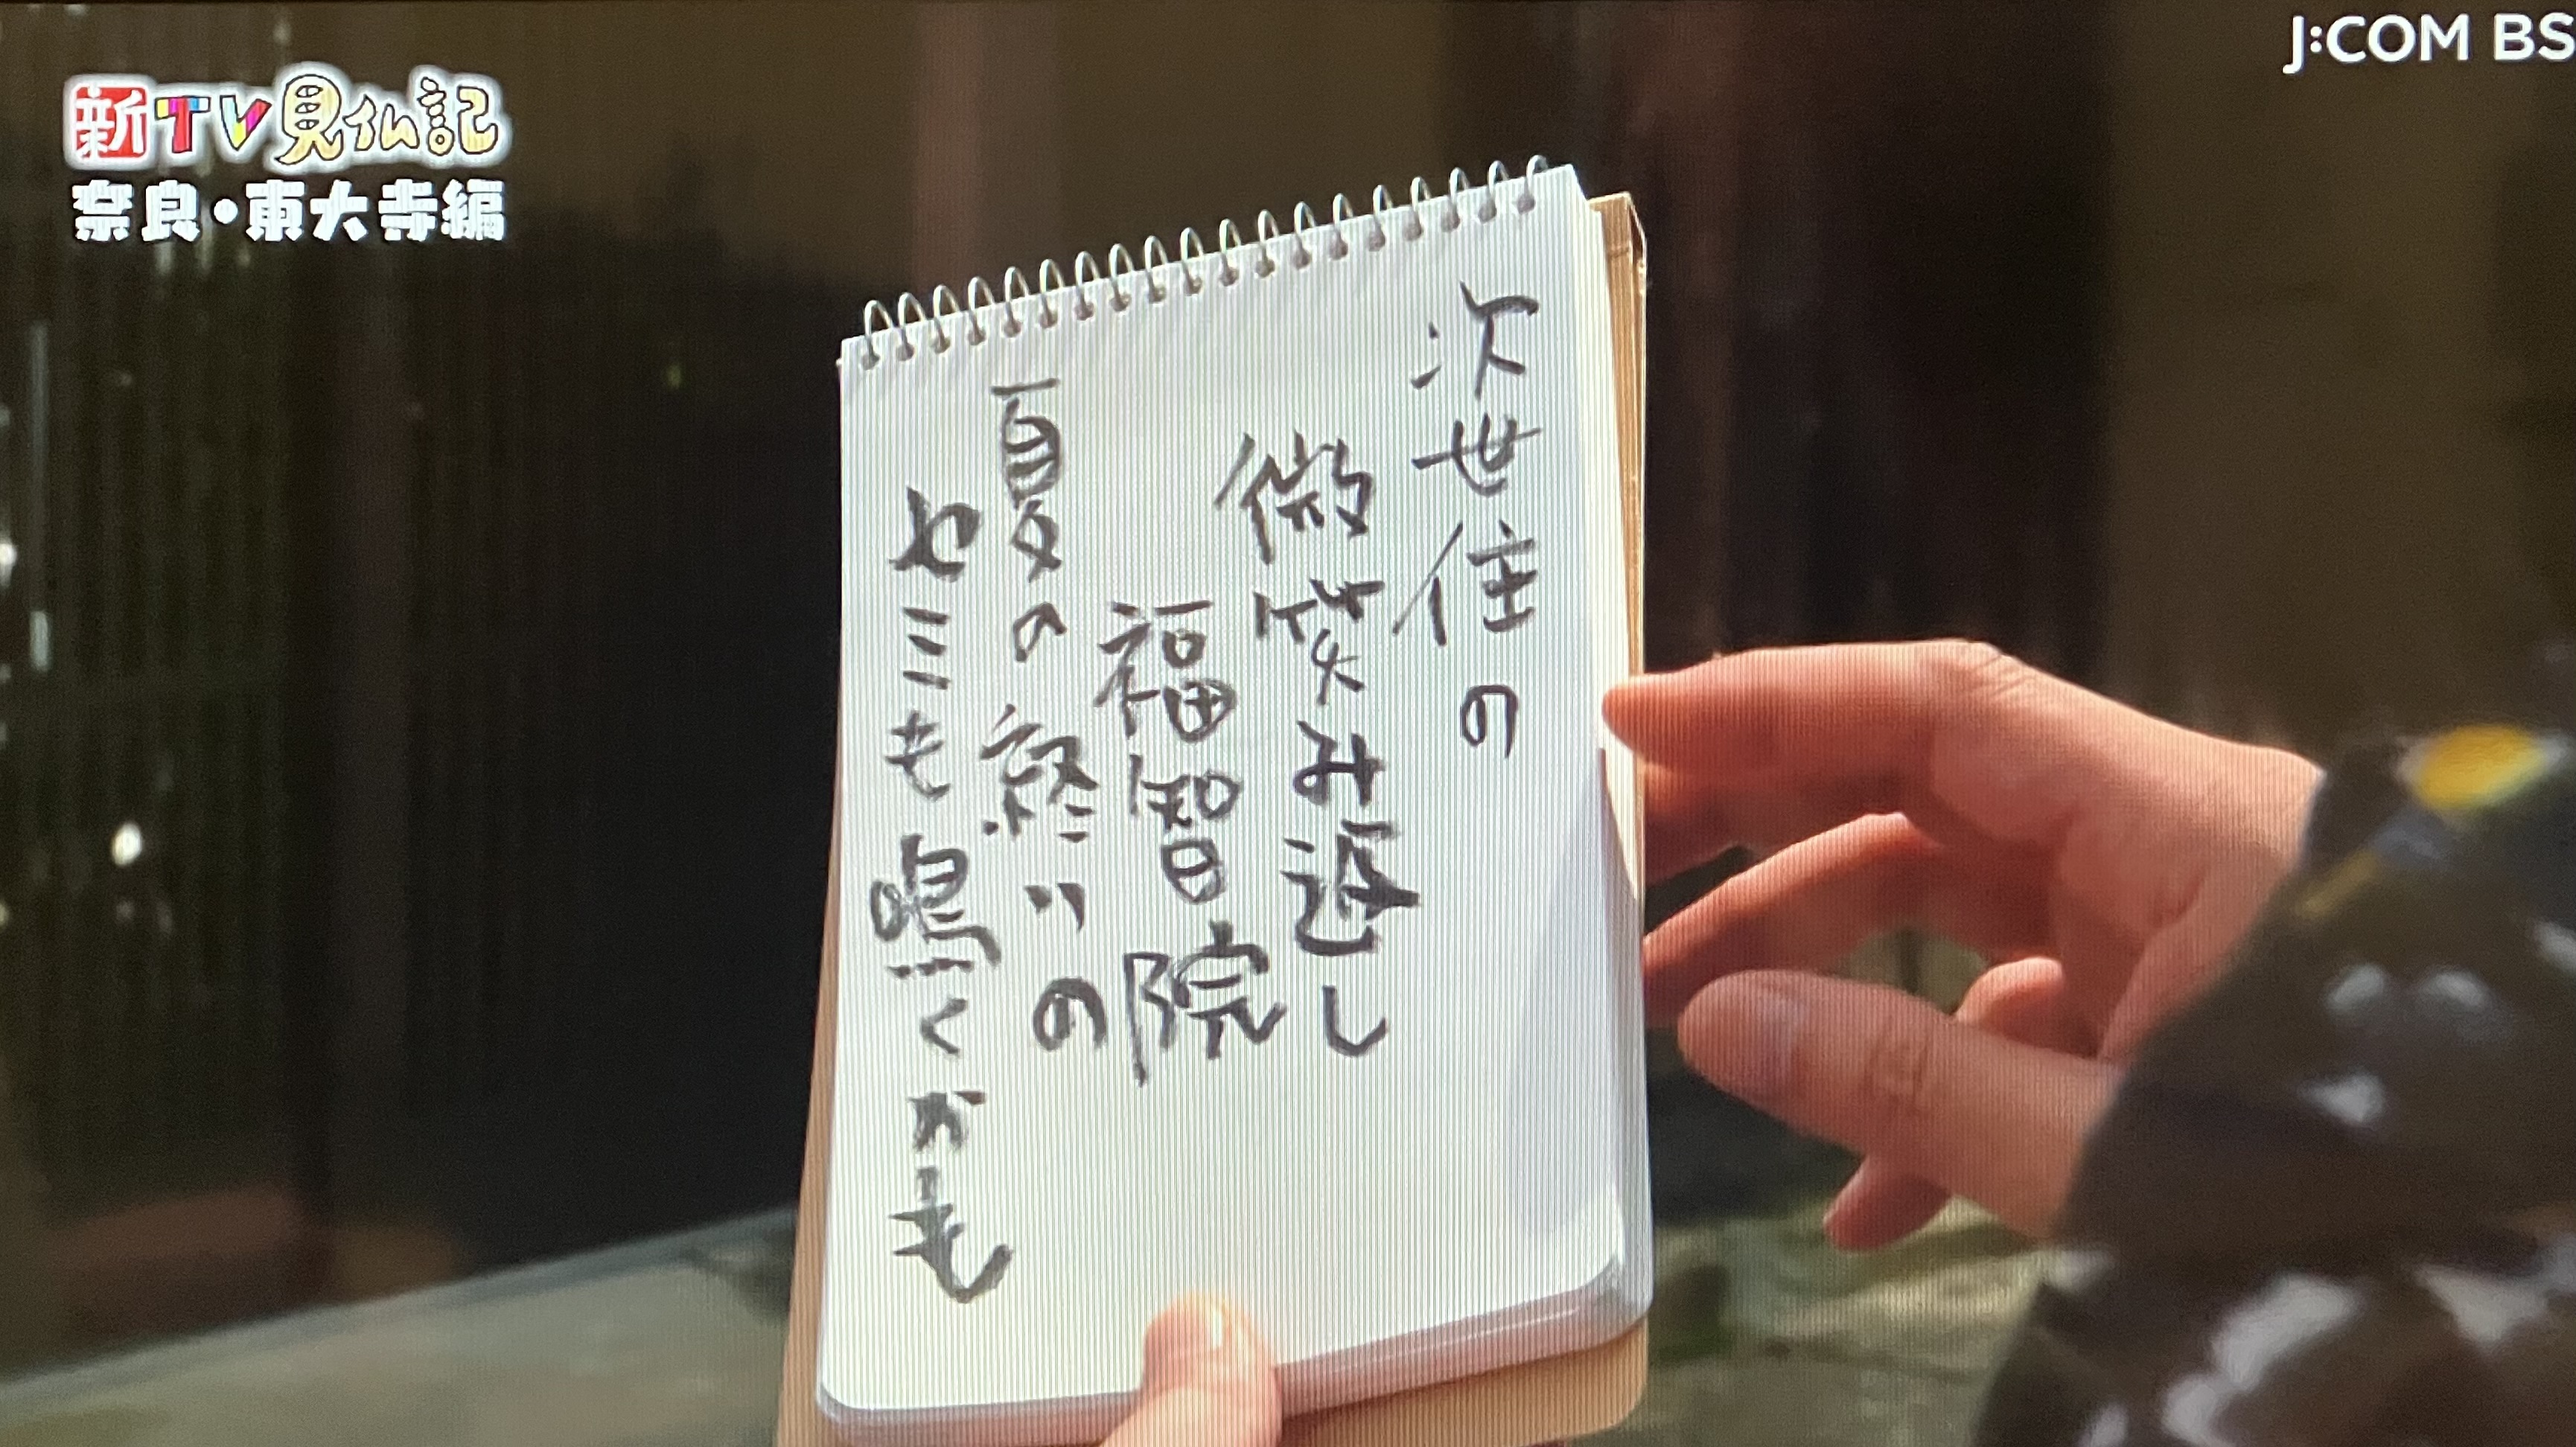 新TV見仏記
奈良・東大寺編
J:COM BS
次世住の
微笑み返し
福智院
夏の終いの
セミも鳴くかも